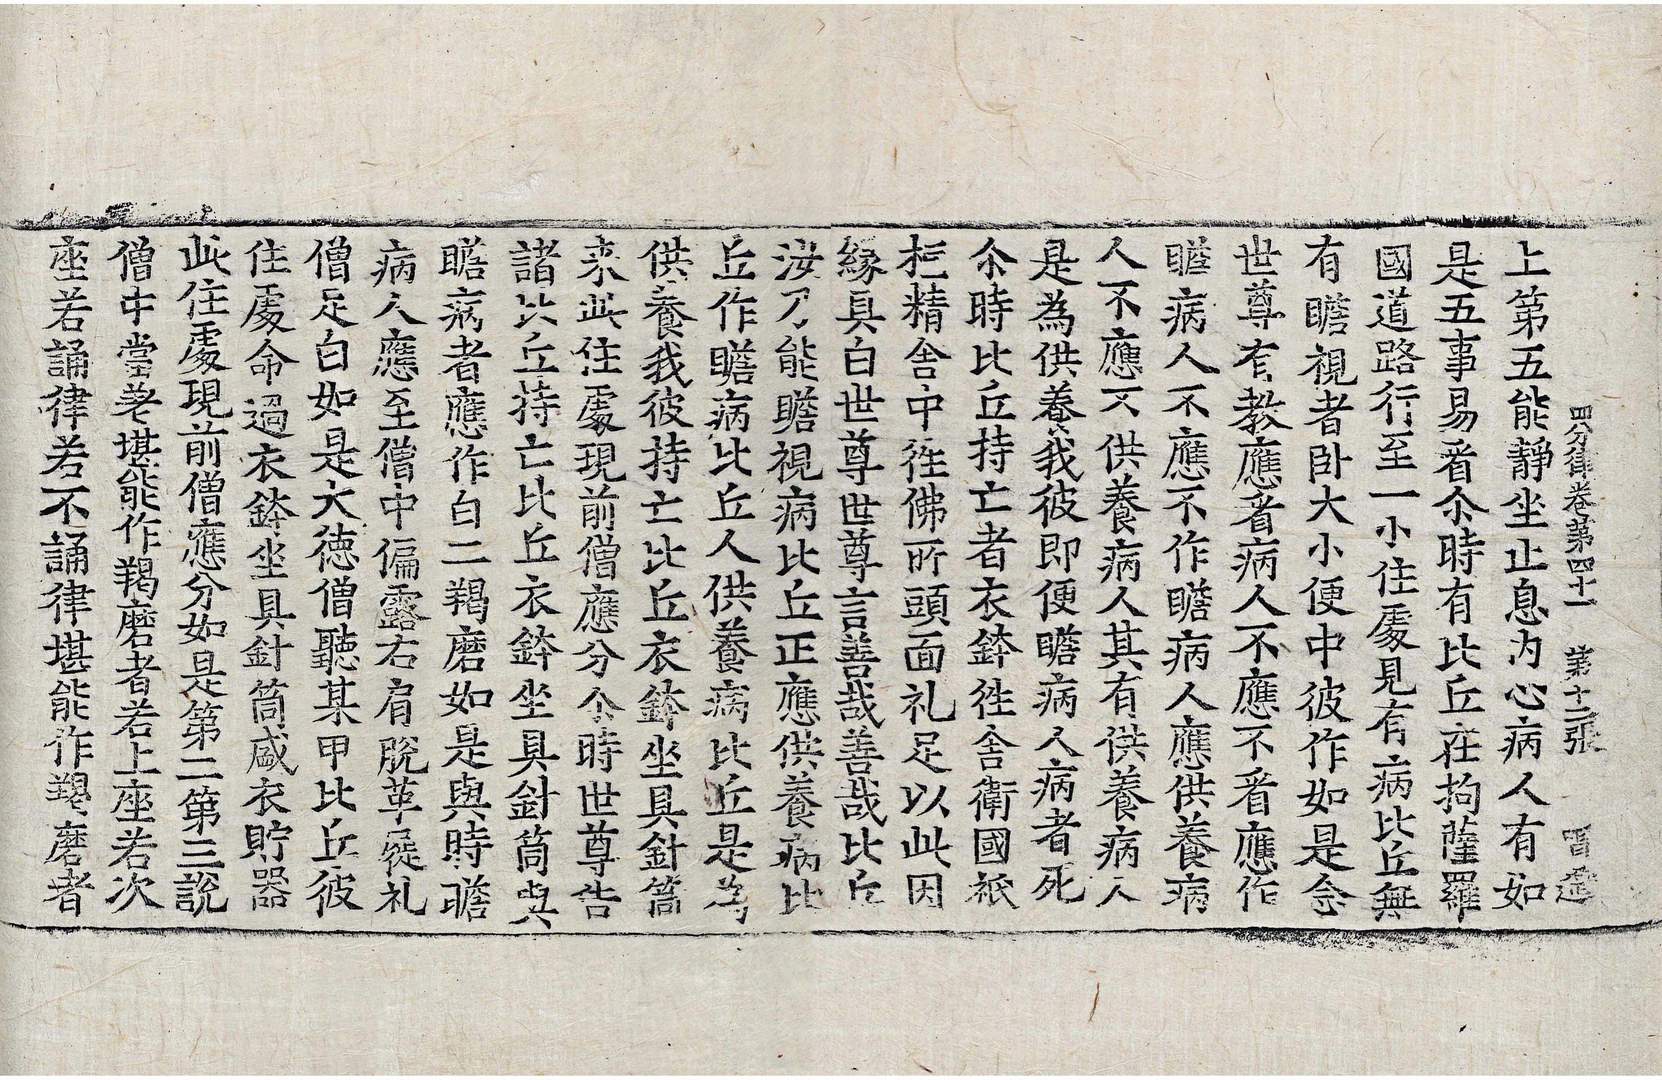 四分律卷第四十一 第十二張
上第五能靜坐止息內心病人有如
是五事易看尒時有比丘在拘薩羅
國道路行至一小住處見有病比丘無
有瞻視者卧大小便中彼作如是念
世尊有教應看病人不應不看應作
瞻病人不應不作瞻病人應供養病
人不應不供養病人其有供養病人
是為供養我彼即便瞻病人病者死
尒時比丘持亡者衣鉢往舍衛國祇
桓精舍中往佛所頭面礼足以此因
緣具白世尊世尊言善哉善哉比丘
汝乃能瞻視病比丘正應供養病比
丘作瞻病比丘人供養病比丘是為
供養我彼持亡比丘衣鉢坐具針筒
來此住處現前僧應分尒時世尊告
諸比丘持亡比丘衣鉢坐具針筒與
瞻病者應作白二羯磨如是與時瞻
病人應至僧中偏露右肩脫革屣礼
僧足白如是大德僧聽某甲比丘彼
住處命過衣鉢坐具針筒盛衣貯器
此住處現前僧應分如是第二第三說
僧中當差堪能作羯磨者若上座若次
座若誦律若不誦律堪能作羯磨者